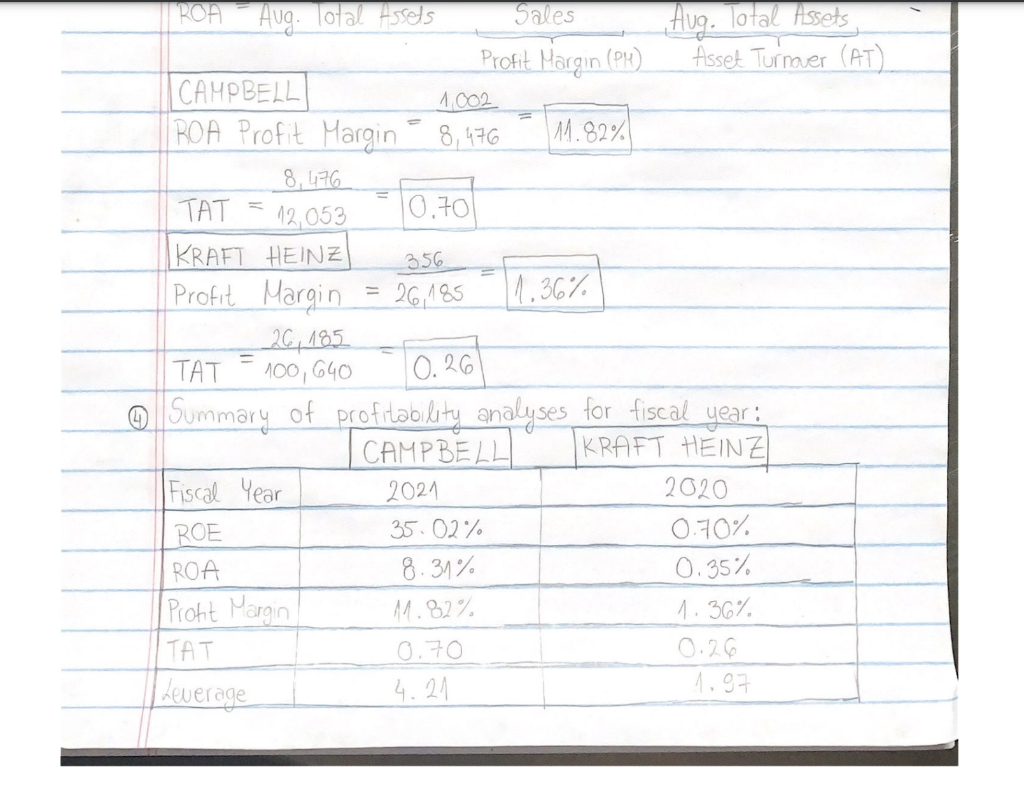 ROA = Avg. Total Assets Sales Avg. Total Assets
Profit Margin (PM) Asset Turnover (AT)
CAMPBELL
ROA Profit Margin = 1,002 / 8,476 = 11.82%
TAT = 8,476 / 12,053 = 0.70
KRAFT HEINZ
Profit Margin = 356 / 26,185 = 1.36%
TAT = 26,185 / 100,640 = 0.26
④ Summary of profitability analyses for fiscal year:
CAMPBELL KRAFT HEINZ
Fiscal Year 2021 2020
ROE 35.02% 0.70%
ROA 8.31% 0.35%
Profit Margin 11.82% 1.36%
TAT 0.70 0.26
Leverage 4.21 1.97